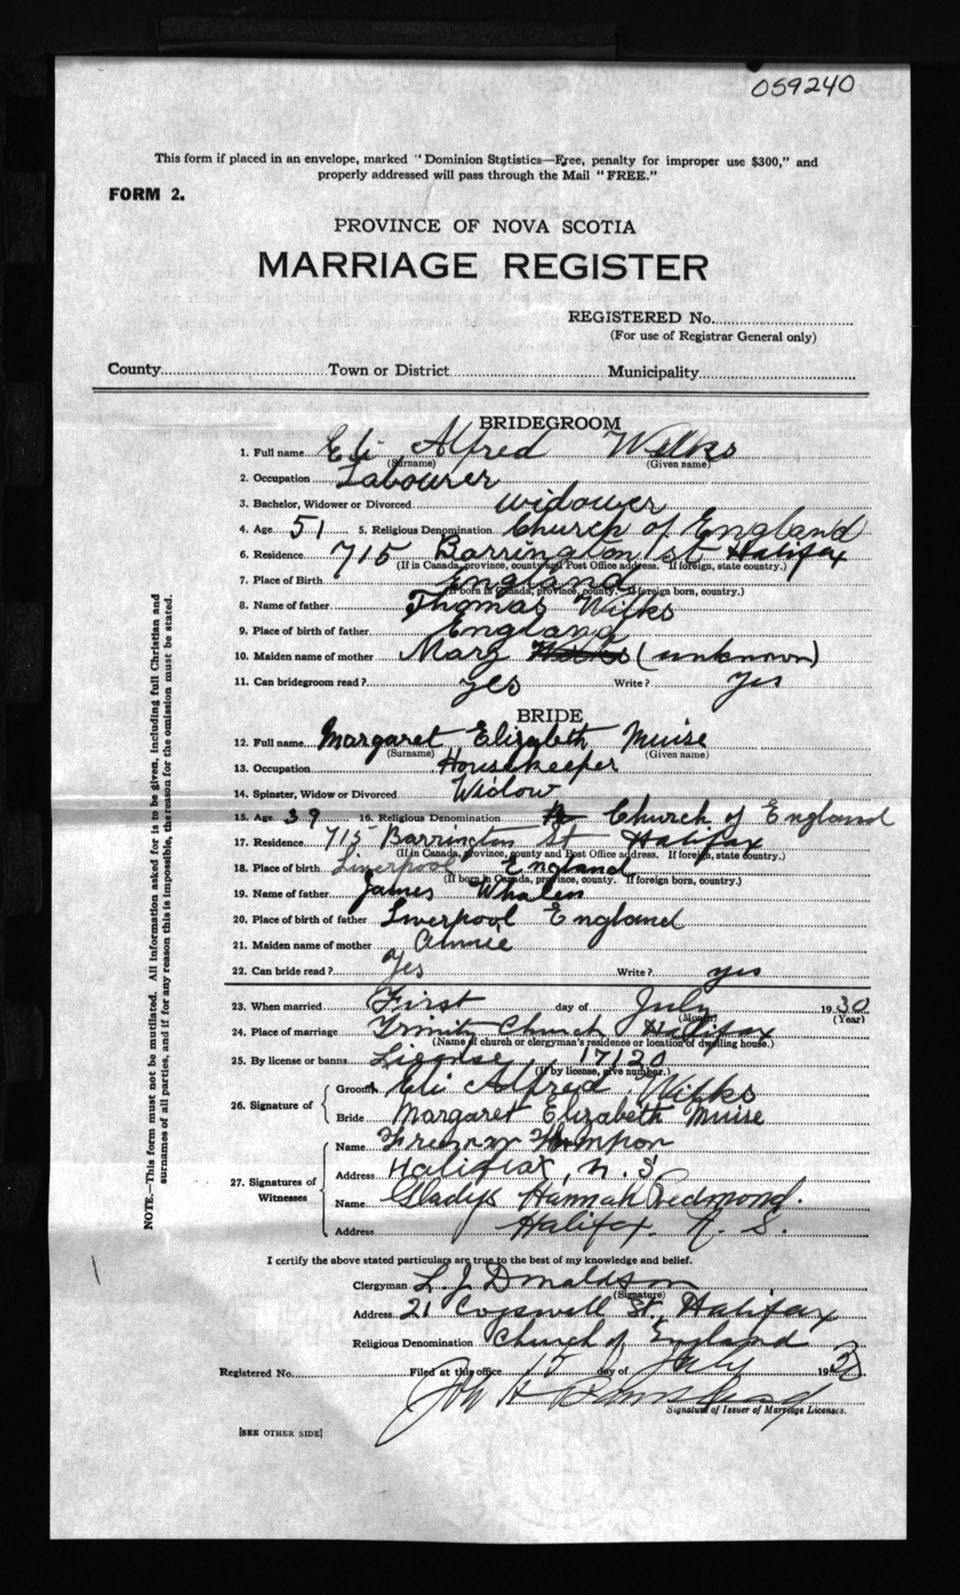 059240
This form if placed in an envelope, marked "Dominion Statistics—Free, penalty for improper use $300," and
properly addressed will pass through the Mail "FREE."
FORM 2.
PROVINCE OF NOVA SCOTIA
MARRIAGE REGISTER
REGISTERED No.
(For use of Registrar General only)
County Town or District Municipality
BRIDEGROOM
1. Full name Eli Alfred Wilks
(Surname) (Given name)
2. Occupation Labourer
3. Bachelor, Widower or Divorced widower
4. Age 51 5. Religious Denomination Church of England
6. Residence 715 Barrington St Halifax
(If in Canada, province, county and Post Office address. If foreign, state country.)
7. Place of Birth England
(If born in Canada, province, county. If foreign born, country.)
8. Name of father Thomas Wilks
9. Place of birth of father England
10. Maiden name of mother Mary Wilks (unknown)
11. Can bridegroom read? yes Write? yes
BRIDE
12. Full name Margaret Elizabeth Muise
(Surname) (Given name)
13. Occupation Housekeeper
14. Spinster, Widow or Divorced Widow
15. Age 39 16. Religious Denomination Church of England
17. Residence 715 Barrington St Halifax
(If in Canada, province, county and Post Office address. If foreign, state country.)
18. Place of birth Liverpool England
(If born in Canada, province, county. If foreign born, country.)
19. Name of father James Whalen
20. Place of birth of father Liverpool England
21. Maiden name of mother Annie
22. Can bride read? Yes Write? yes
23. When married First day of July 1930
(Month) (Year)
24. Place of marriage Trinity Church Halifax
(Name of church or clergyman's residence or location of dwelling house.)
25. By license or banns License, 17120
(If by license, give number.)
26. Signature of Groom Eli Alfred Wilks
Bride Margaret Elizabeth Muise
27. Signatures of Witnesses
Name
Address Halifax, N. S.
Name Gladys Hannah Redmond.
Address Halifax. N. S.
I certify the above stated particulars are true to the best of my knowledge and belief.
Clergyman L. J. Donaldson
(Signature)
Address 21 Cogswell St., Halifax
Religious Denomination Church of England
Registered No. Filed at this office 15 day of July 1930
Signature of Issuer of Marriage Licenses.
[SEE OTHER SIDE]
NOTE.—This form must not be mutilated. All information asked for is to be given, including full Christian and
surnames of all parties, and if for any reason this is impossible, the reason for the omission must be stated.